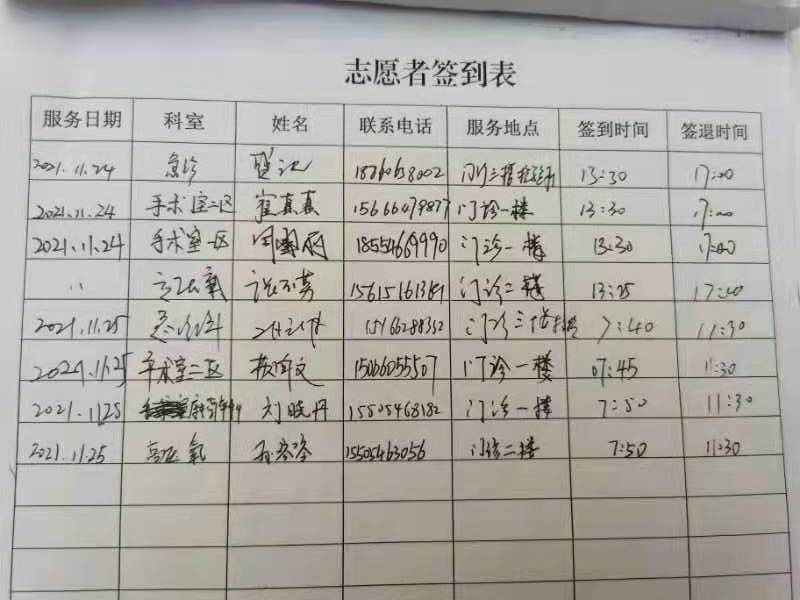 志愿者签到表
服务日期 科室 姓名 联系电话 服务地点 签到时间 签退时间
2021.11.24 急诊 13:30 17:00
2021.11.24 手术室二区 崔真真 15666079877 门诊一楼 13:30 17:00
2021.11.24 手术室一区 18554669990 门诊一楼 13:30 17:00
〃 高压氧 15615161389 门诊二楼 13:25 17:00
2021.11.25 15166288352 门诊三楼 7:40 11:30
2021.11.25 手术室二区 15066055507 门诊一楼 07:45 11:30
2021.11.25 刘晓丹 15505468182 门诊一楼 7:50 11:30
2021.11.25 高压氧 15505463056 门诊二楼 7:50 11:30